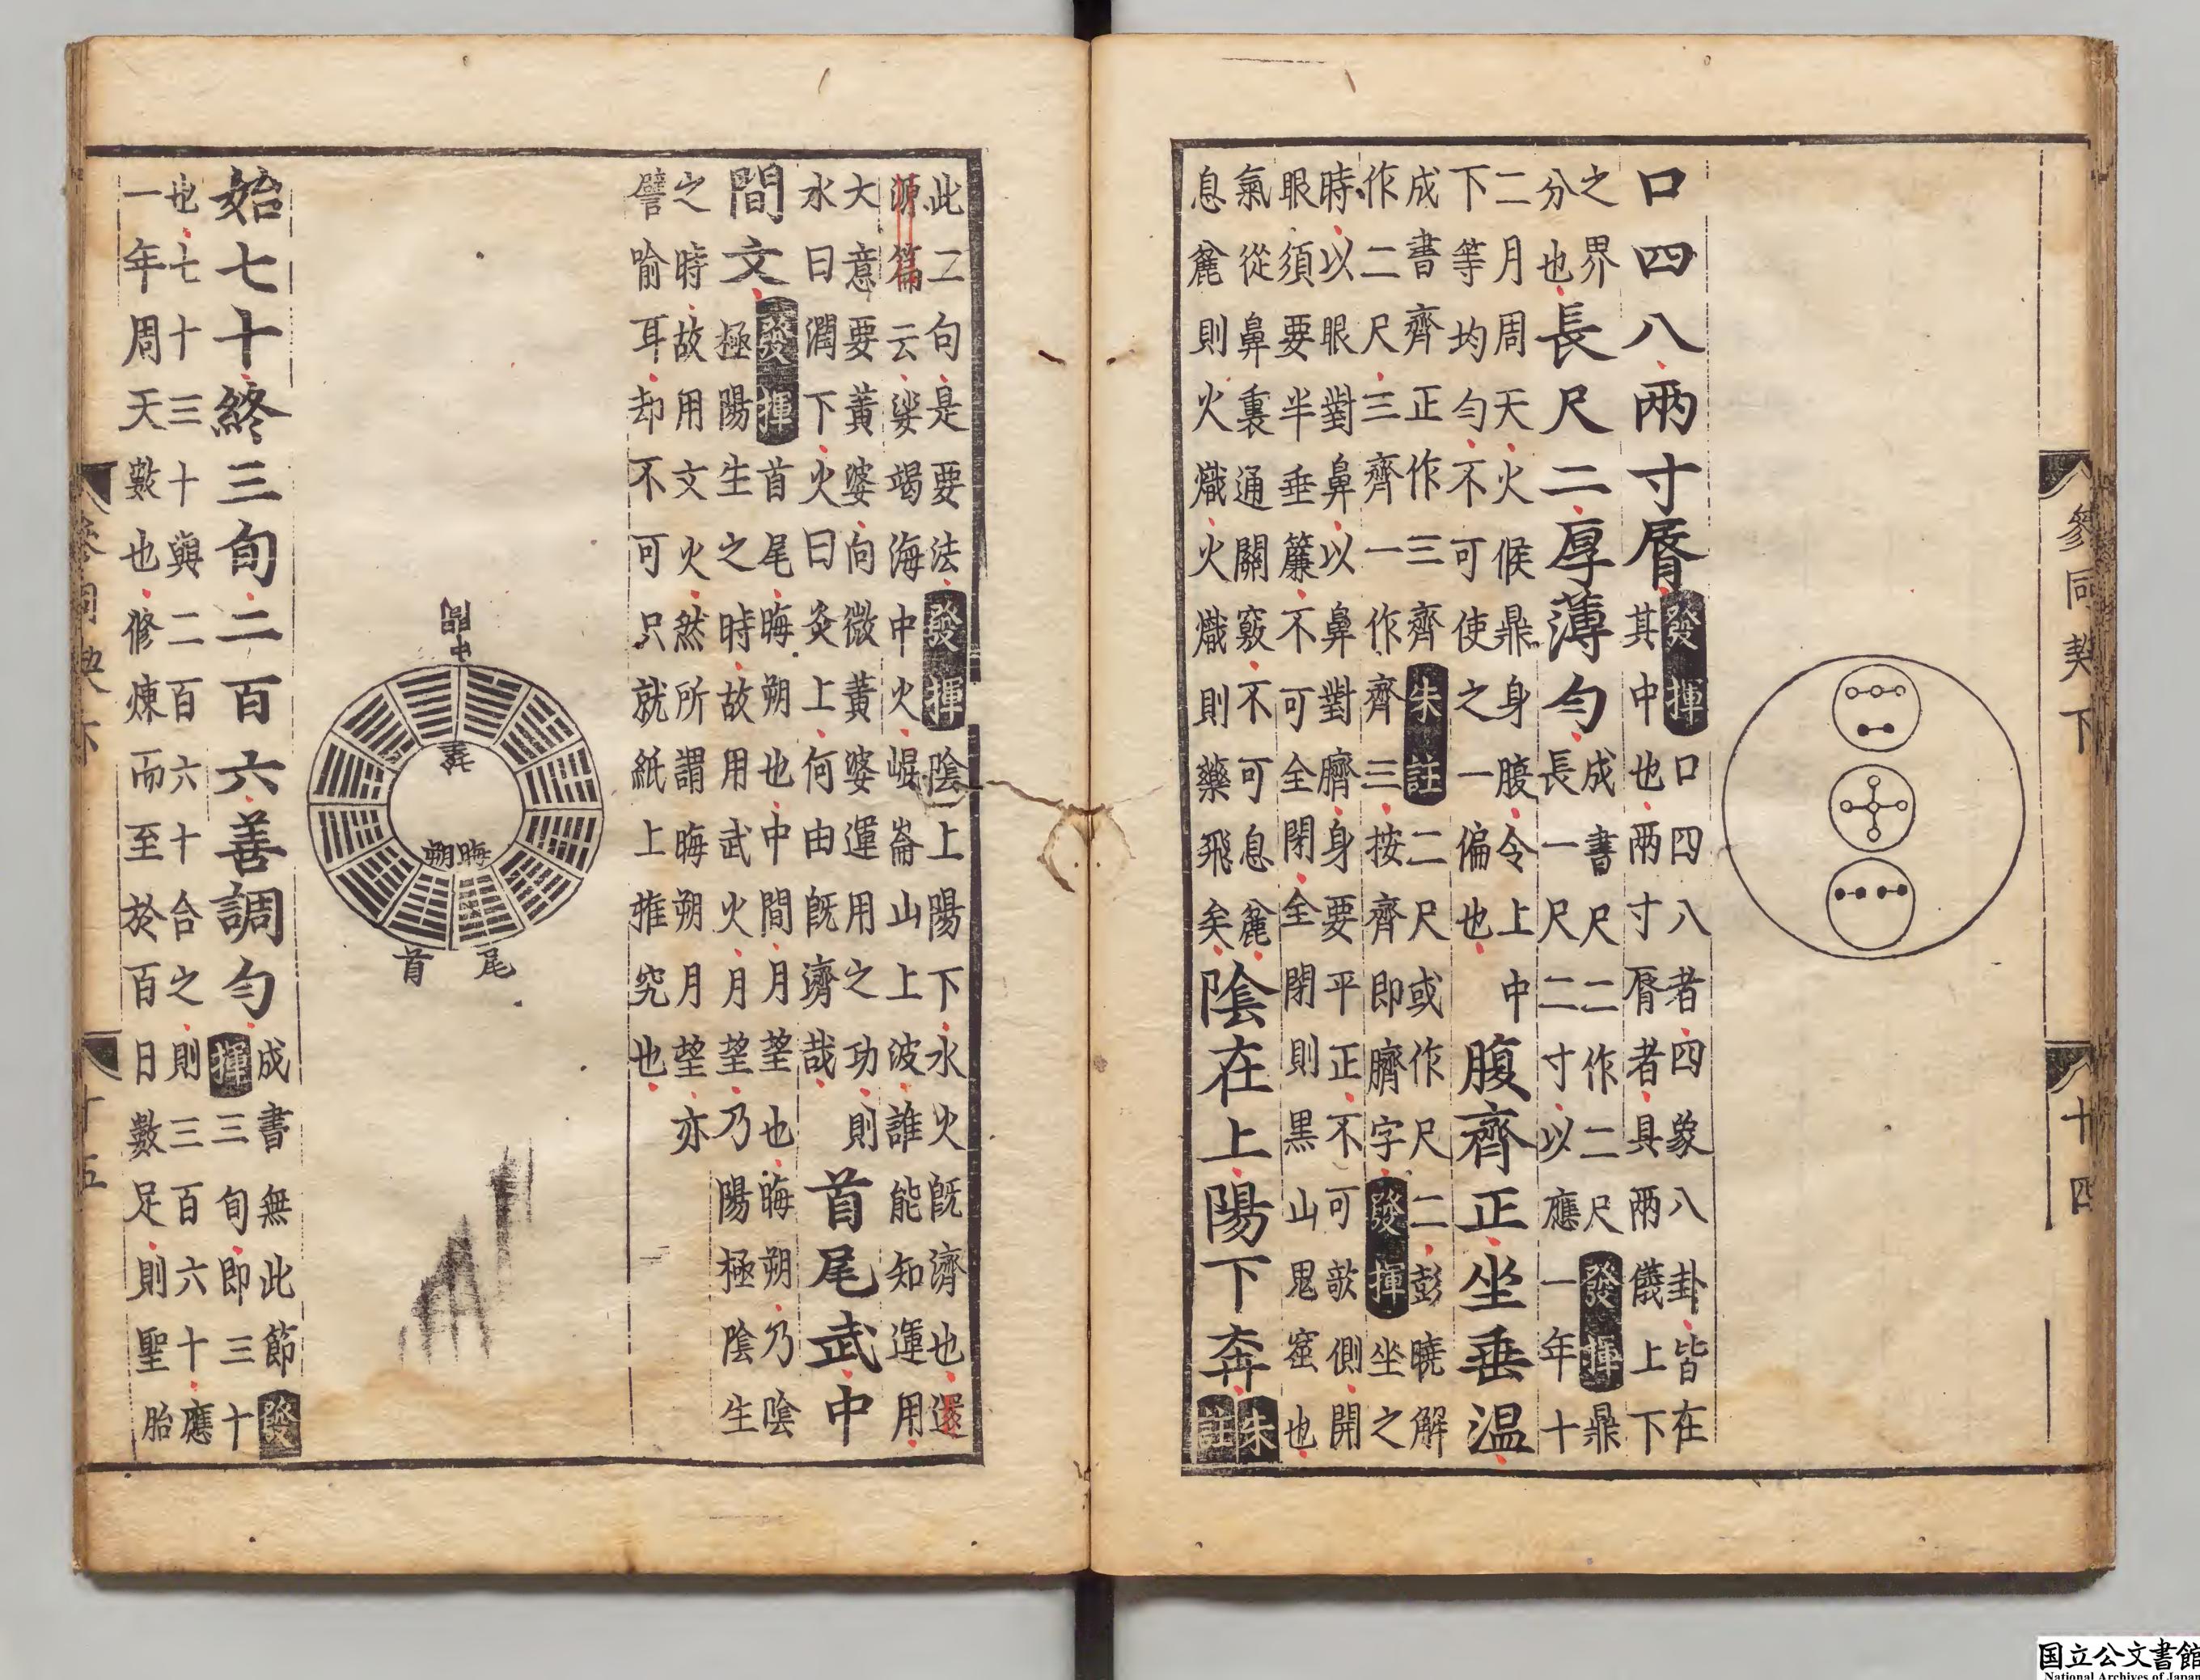 參同契下 十四
口四八兩寸脣
發揮口四八者四象八卦皆在
其中也兩寸脣者具兩儀上下
之界
分也
長尺二厚薄勻
成書尺二作二尺發揮鼎
長一尺二寸以應一年十
二月周天火候鼎身腹令上中
下等均勻不可使之一偏也
腹齊正坐垂溫
成書齊正作三齊朱註二尺或作尺二彭曉解
作二尺三齊一作齊三按齊即臍字發揮坐之
時以眼對鼻以鼻對臍身要平正不可欹側開
眼須要半垂簾不可全閉全閉則黑山鬼窟也
氣從鼻裏通關竅不可息麄
息麄則火熾火熾則藥飛矣
陰在上陽下奔
朱註
此二句是要法發揮陰上陽下水火既濟也還
源篇云娑竭海中火崐崙山上波誰能知運用
大意要黃婆向微黃婆運用之功則
水曰潤下火曰炎上何由既濟哉
首尾武中
間文
發揮首尾晦朔也中間月望也晦朔乃陰
極陽生之時故用武火月望乃陽極陰生
之時故用文火然所謂晦朔月望亦
譬喻耳却不可只就紙上推究也
中間
望
晦朔
尾
首
始七十終三旬二百六善調勻
成書無此節發
揮三旬即三十
也七十三十與二百六十合之則三百六十應
一年周天數也修煉而至於百日數足則聖胎
十五
国立公文書館
National Archives of Japan